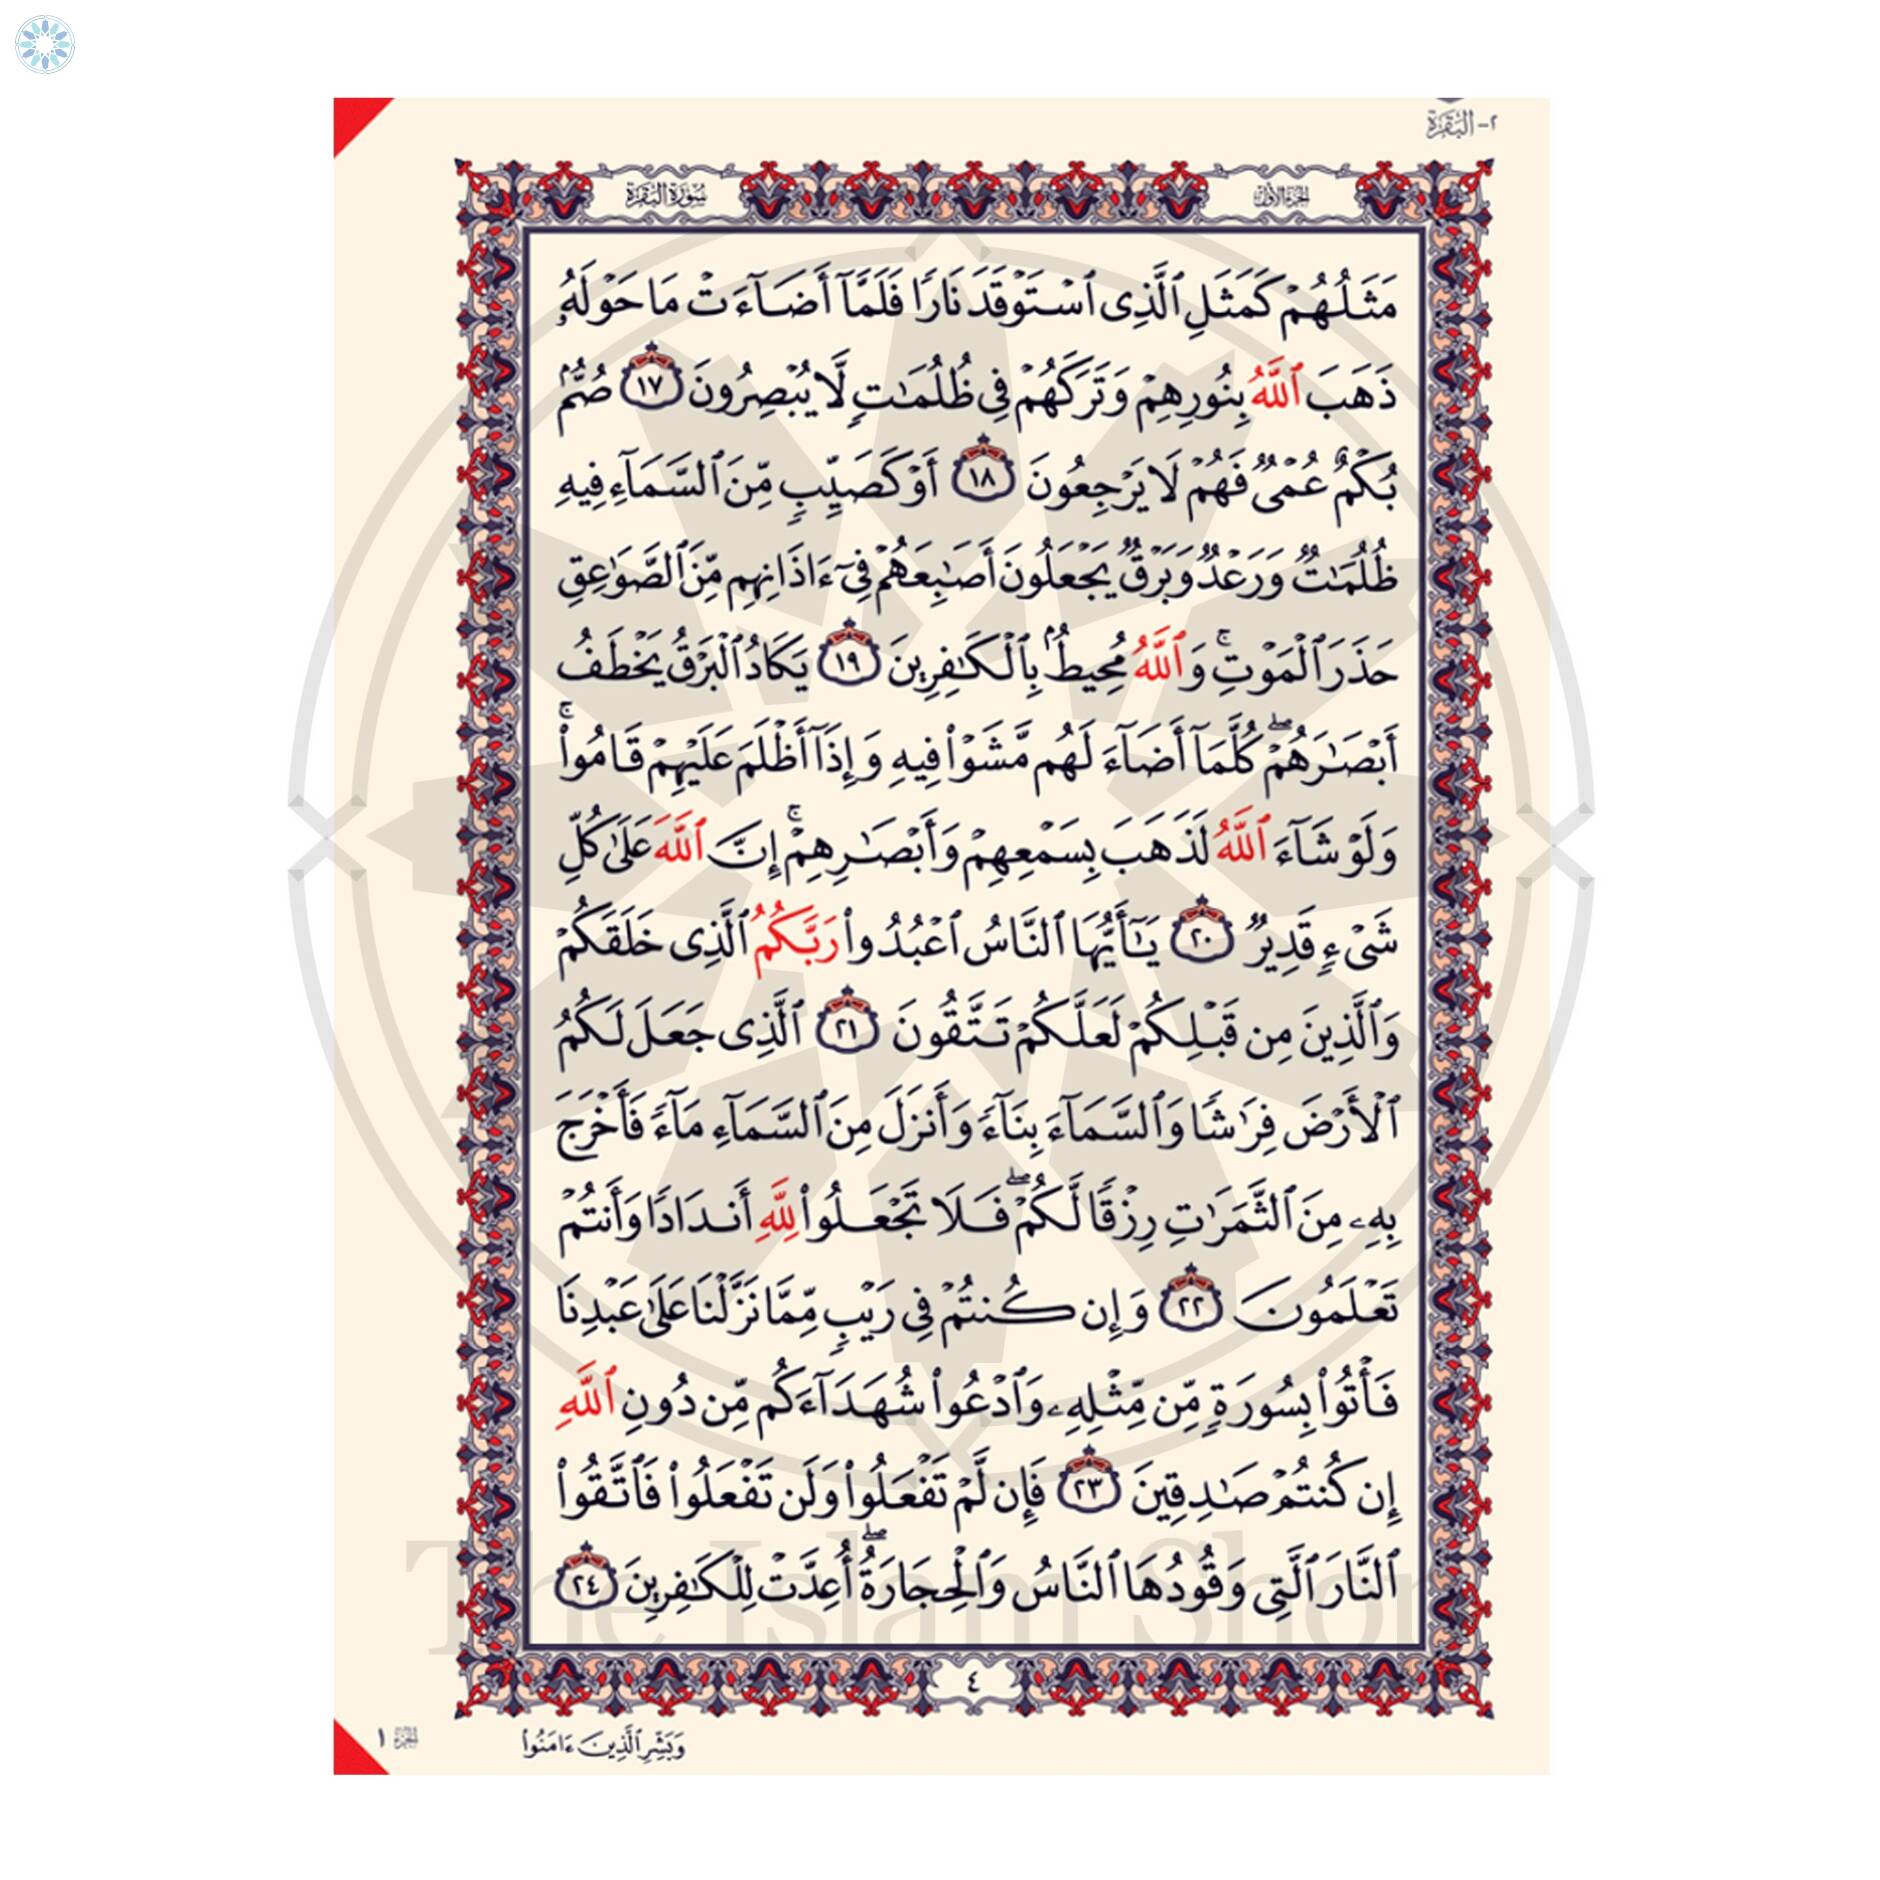 ٢- البقرة
الجزء الأول
سورة البقرة
مَثَلُهُمْ كَمَثَلِ ٱلَّذِى ٱسْتَوْقَدَ نَارًا فَلَمَّآ أَضَآءَتْ مَا حَوْلَهُۥ
ذَهَبَ ٱللَّهُ بِنُورِهِمْ وَتَرَكَهُمْ فِى ظُلُمَٰتٍ لَّا يُبْصِرُونَ ١٧ صُمٌّۢ
بُكْمٌ عُمْىٌ فَهُمْ لَا يَرْجِعُونَ ١٨ أَوْ كَصَيِّبٍ مِّنَ ٱلسَّمَآءِ فِيهِ
ظُلُمَٰتٌ وَرَعْدٌ وَبَرْقٌ يَجْعَلُونَ أَصَٰبِعَهُمْ فِىٓ ءَاذَانِهِم مِّنَ ٱلصَّوَٰعِقِ
حَذَرَ ٱلْمَوْتِ ۚ وَٱللَّهُ مُحِيطٌۢ بِٱلْكَٰفِرِينَ ١٩ يَكَادُ ٱلْبَرْقُ يَخْطَفُ
أَبْصَٰرَهُمْ ۖ كُلَّمَآ أَضَآءَ لَهُم مَّشَوْا۟ فِيهِ وَإِذَآ أَظْلَمَ عَلَيْهِمْ قَامُوا۟ ۚ
وَلَوْ شَآءَ ٱللَّهُ لَذَهَبَ بِسَمْعِهِمْ وَأَبْصَٰرِهِمْ ۚ إِنَّ ٱللَّهَ عَلَىٰ كُلِّ
شَىْءٍ قَدِيرٌ ٢٠ يَٰٓأَيُّهَا ٱلنَّاسُ ٱعْبُدُوا۟ رَبَّكُمُ ٱلَّذِى خَلَقَكُمْ
وَٱلَّذِينَ مِن قَبْلِكُمْ لَعَلَّكُمْ تَتَّقُونَ ٢١ ٱلَّذِى جَعَلَ لَكُمُ
ٱلْأَرْضَ فِرَٰشًا وَٱلسَّمَآءَ بِنَآءً وَأَنزَلَ مِنَ ٱلسَّمَآءِ مَآءً فَأَخْرَجَ
بِهِۦ مِنَ ٱلثَّمَرَٰتِ رِزْقًا لَّكُمْ ۖ فَلَا تَجْعَلُوا۟ لِلَّهِ أَندَادًا وَأَنتُمْ
تَعْلَمُونَ ٢٢ وَإِن كُنتُمْ فِى رَيْبٍ مِّمَّا نَزَّلْنَا عَلَىٰ عَبْدِنَا
فَأْتُوا۟ بِسُورَةٍ مِّن مِّثْلِهِۦ وَٱدْعُوا۟ شُهَدَآءَكُم مِّن دُونِ ٱللَّهِ
إِن كُنتُمْ صَٰدِقِينَ ٢٣ فَإِن لَّمْ تَفْعَلُوا۟ وَلَن تَفْعَلُوا۟ فَٱتَّقُوا۟
ٱلنَّارَ ٱلَّتِى وَقُودُهَا ٱلنَّاسُ وَٱلْحِجَارَةُ ۖ أُعِدَّتْ لِلْكَٰفِرِينَ ٢٤
The Islam Shop
٤
وَبَشِّرِ ٱلَّذِينَ ءَامَنُوا۟
الجزء ١